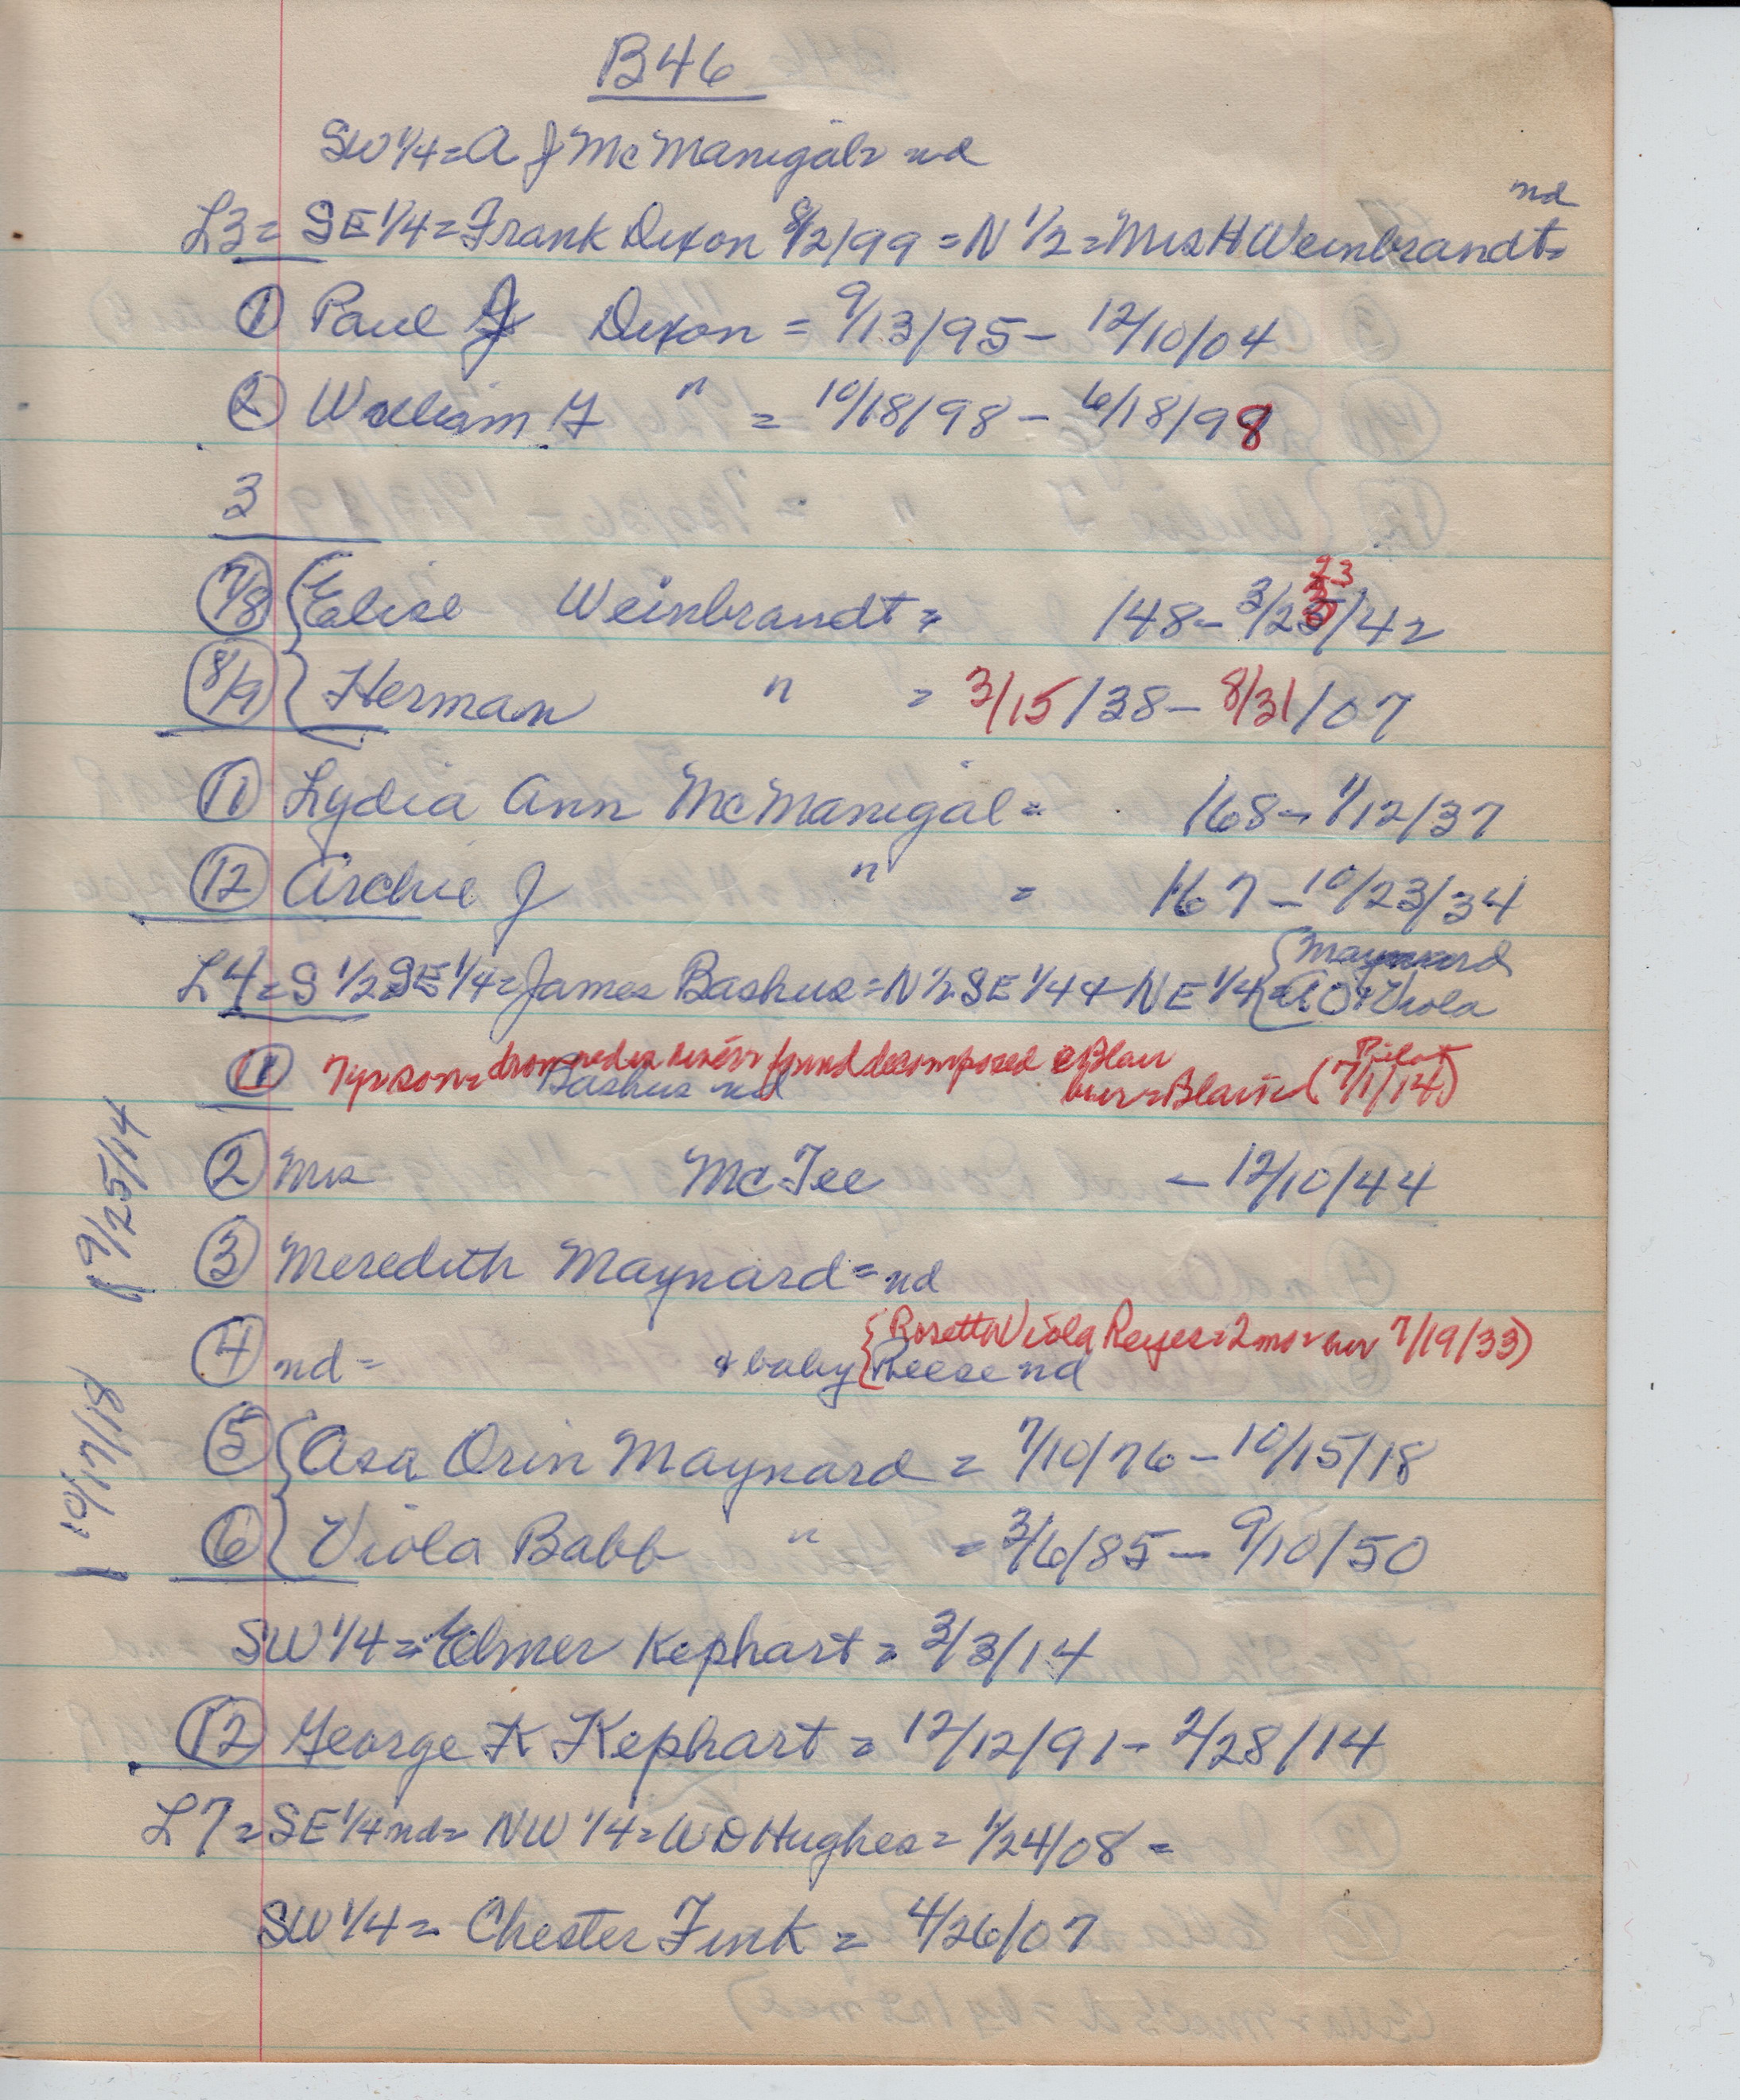 B46
SW 1/4 = A J McManigal = nd
nd
L3 = SE 1/4 = Frank Dixon 8/2/99 = N 1/2 = Mrs H Weinbrandt =
1 Paul J Dixon = 9/13/95 - 12/10/04
2 William F " = 10/18/98 - 6/18/98
3
7/8 { Elise Weinbrandt = 148 - 3/2 /42
23
8/9 { Herman " = 3/15/38 - 8/31/07
11 Lydia Ann McManigal = 168 - 1/12/37
12 Archie J " = 167 - 10/23/34
L4 = S 1/2 SE 1/4 = James Bashus = N 1/2 SE 1/4 & NE 1/4 = { Maynard
A.O & Viola
1 7 yr son = drowned in river = found decomposed @ Blair
Bashus nd bur = Blair = ( Pilot 7/1/14)
2 Mrs McTee - 12/10/44
3 Meredith Maynard = nd
4 nd = & baby { Reese nd
{ Rosetta Viola Reyes = 2 mo = bur 7/19/33)
5 { Asa Orin Maynard = 7/10/76 - 10/15/18
6 { Viola Babb " = 3/6/85 - 9/10/50
SW 1/4 = Elmer Kephart = 3/3/14
12 George K Kephart = 12/12/91 - 2/28/14
L7 = SE 1/4 nd = NW 1/4 = W D Hughes = 1/24/08 =
SW 1/4 = Chester Fink = 4/26/07
9/25/14
10/17/18